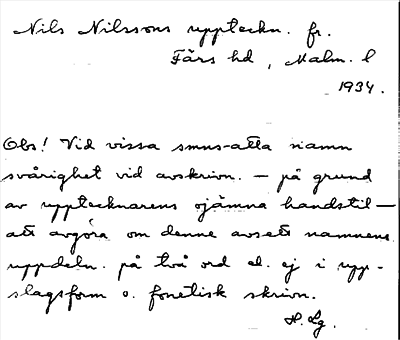 Nils Nilssons uppteckn. fr.
Färs hd, Malm. l
1934.
Obs! Vid vissa smus-atta namn
svårighet vid avskrivn. – på grund
av upptecknarens ojämna handstil –
att avgöra om denne avsett namnens
uppdeln. på två ord el. ej i upp-
slagsform o. fonetisk skrivn.
H. Lg.